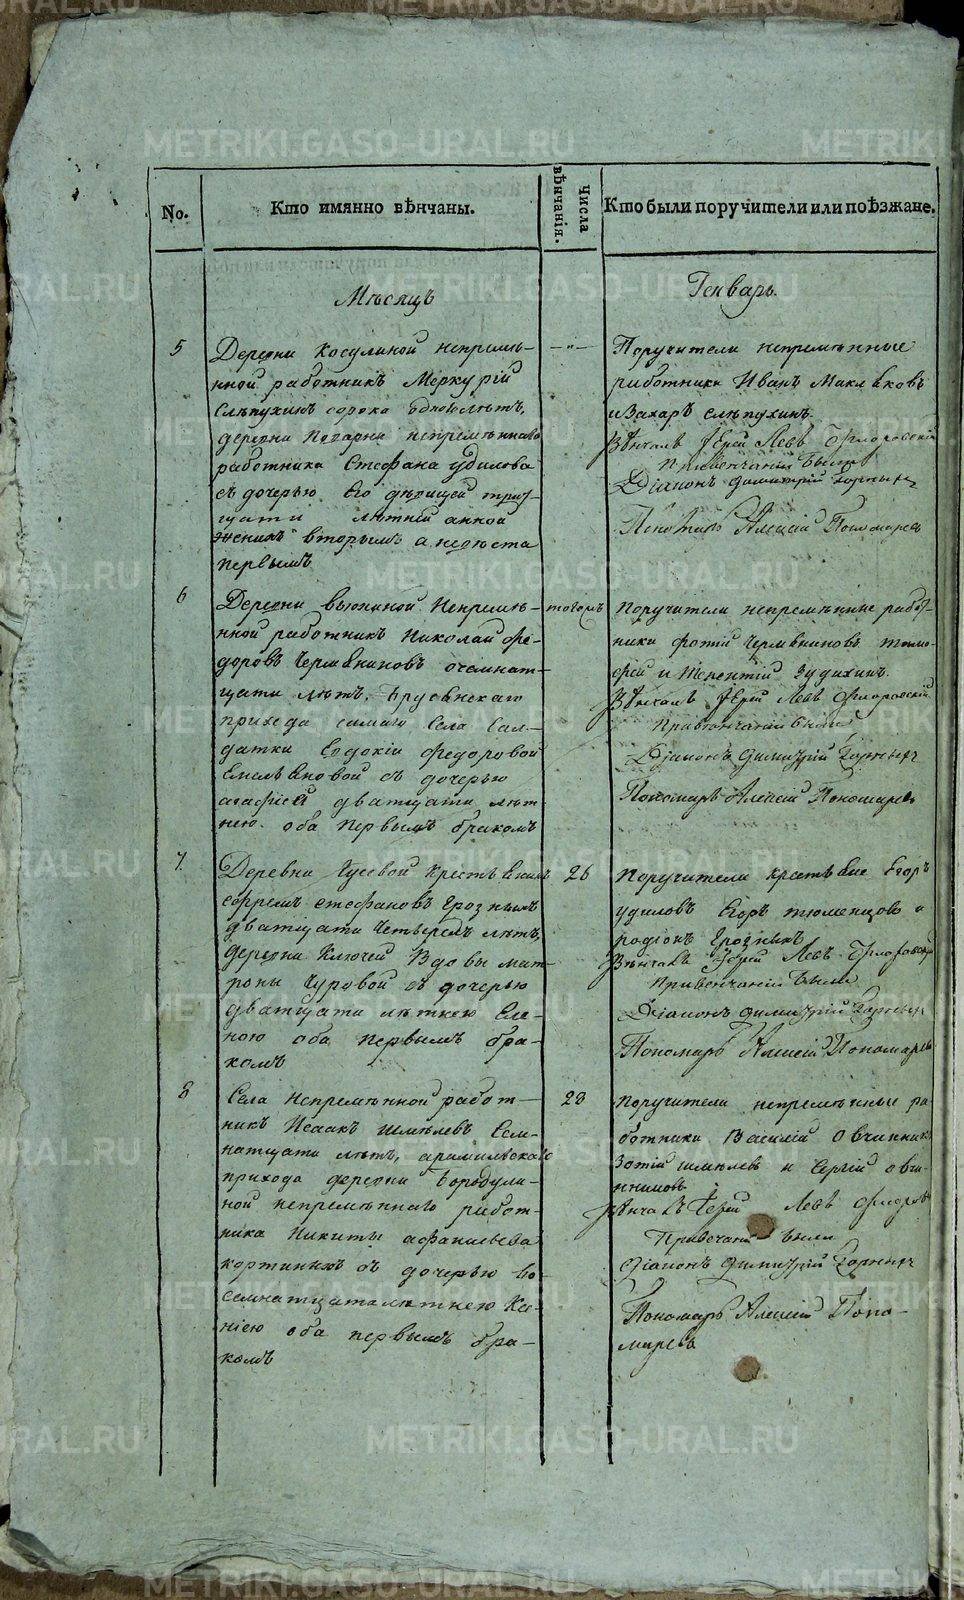 No.
Кто имянно вѣнчаны.
Числа вѣнчанія.
Кто были поручители или поѣзжане.
Мѣсяцъ
Генварь.
5
Деревни Косулиной непремѣ-
нной работникъ Меркурій
Слѣпухинъ сорока однолѣтъ,
деревни непремѣннаго
работника Стефана Удилова
съ дочерью его дѣвицей трит-
цати лѣтней анной
женихъ вторымъ а невѣста
первымъ
—„—
Поручители непремѣнные
работники Иванъ
и Захаръ слѣпухинъ.
Вѣнчалъ Іерей Левъ Флоровскій
При венчаніи были
Діаконъ Димитрій
Пономарь Алексій Пономаревъ
6
Деревни вьюхиной Непремѣ-
нной работникъ Николай Фе-
доровъ Чермяниновъ осемнат-
цати лѣтъ, Брусянскаго
прихода самаго Села Сал-
датки Евдокіи Федоровой
Емельяновой съ дочерью
агафіей дватцати лѣт-
нею. оба первымъ бракомъ
тогожъ
Поручители непремѣнные работ-
ники фотій Чермяниновъ тимо-
фей и Терентій Зудихин
Вѣнчалъ Іерей Левъ Флоровскій
При венчаніи были
Діаконъ Димитрій
Пономарь Алексій Пономаревъ
7.
Деревни Гусевой Крестьянинъ
ефремъ стефановъ Грозныхъ
дватцати четырехъ лѣтъ,
деревни Ключей Вдовы мат-
роны Чуровой съ дочерью
дватцати лѣтнею Еле-
ною оба первымъ бра-
комъ
26
Поручители крестьяне Егоръ
удиловъ Егоръ тюменцовъ и
родіонъ Грозныхъ
Вѣнчалъ Іерей Левъ Флоровскій
При венчаніи были
Діаконъ Димитрій
Пономарь Алексій Пономаревъ
8
Села Непремѣнной работ-
никъ Исаакъ Шмѣлевъ Сем-
натцати лѣтъ, арамильскаго
прихода деревни Бородули-
ной непремѣннаго работ-
ника Никиты афанасьева
съ дочерью во-
семнатцатилѣтнею Ксе-
ніею оба первымъ бра-
комъ
28
Поручители непремѣнные ра-
ботники Василій Овчинник
Зотій шмелевъ и Сергій овчи-
нниковъ
Вѣнчалъ Іерей Левъ Флоровс
При венчаніи были
Діаконъ Димитрій
Пономарь Алексій Поно-
маревъ